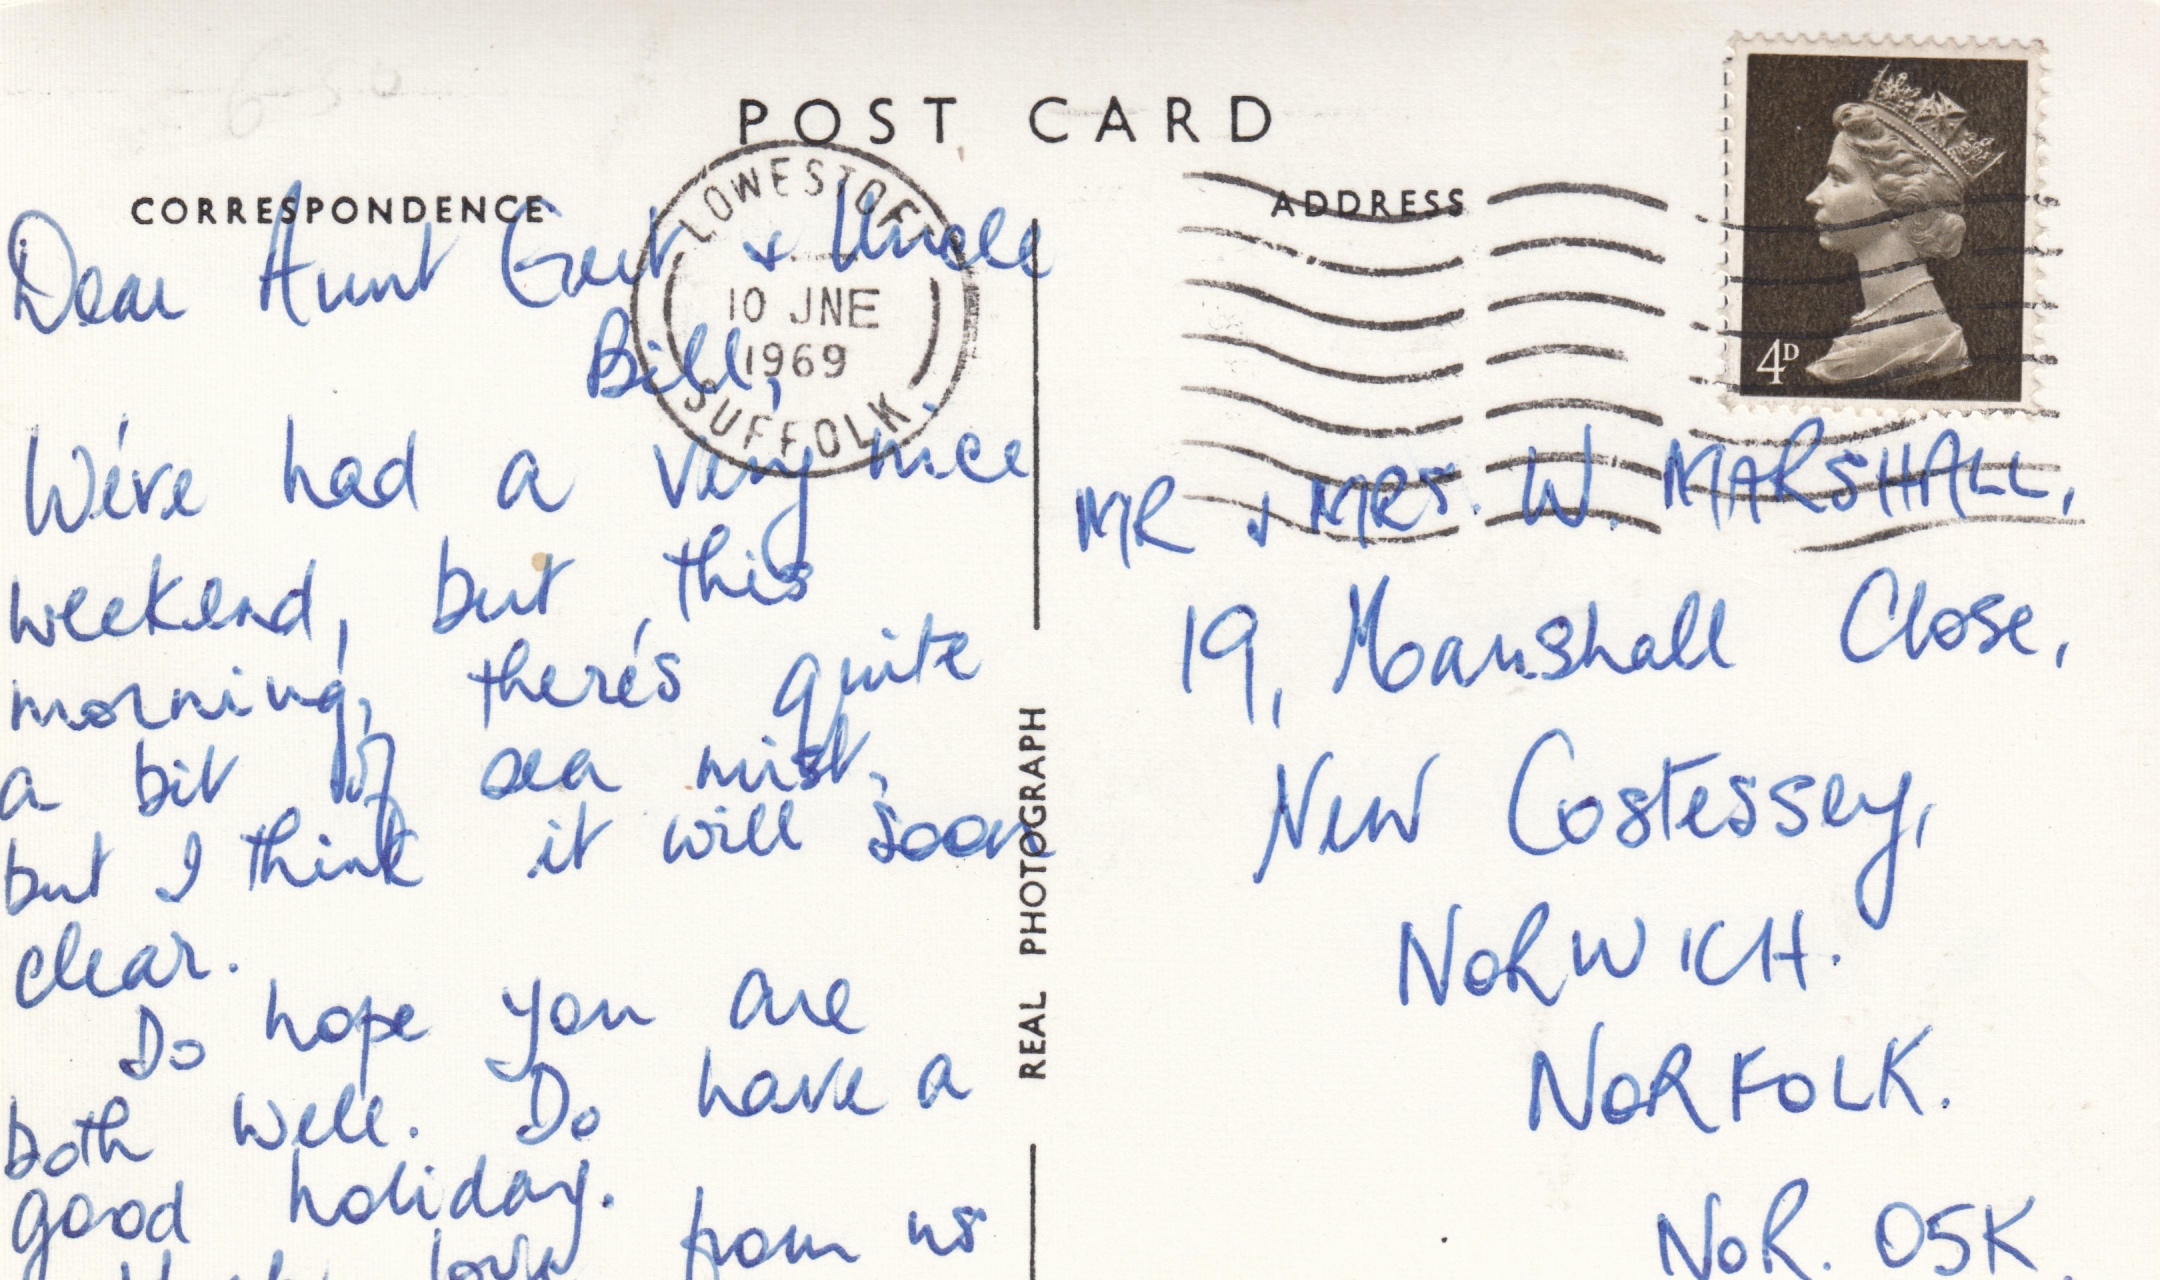 POST CARD
CORRESPONDENCE
ADDRESS
LOWESTOFT
10 JNE
1969
SUFFOLK
4D
Dear Aunt Gert & Uncle
Bill,
We've had a very nice
weekend, but, this
morning, there's quite
a bit of sea mist,
but I think it will soon
clear.
Do hope you are
both well. Do have a
good holiday.
love from us
REAL PHOTOGRAPH
MR & MRS. W. MARSHALL,
19, Marshall Close,
New Costessey,
NORWICH.
NORFOLK.
NOR. 05K.